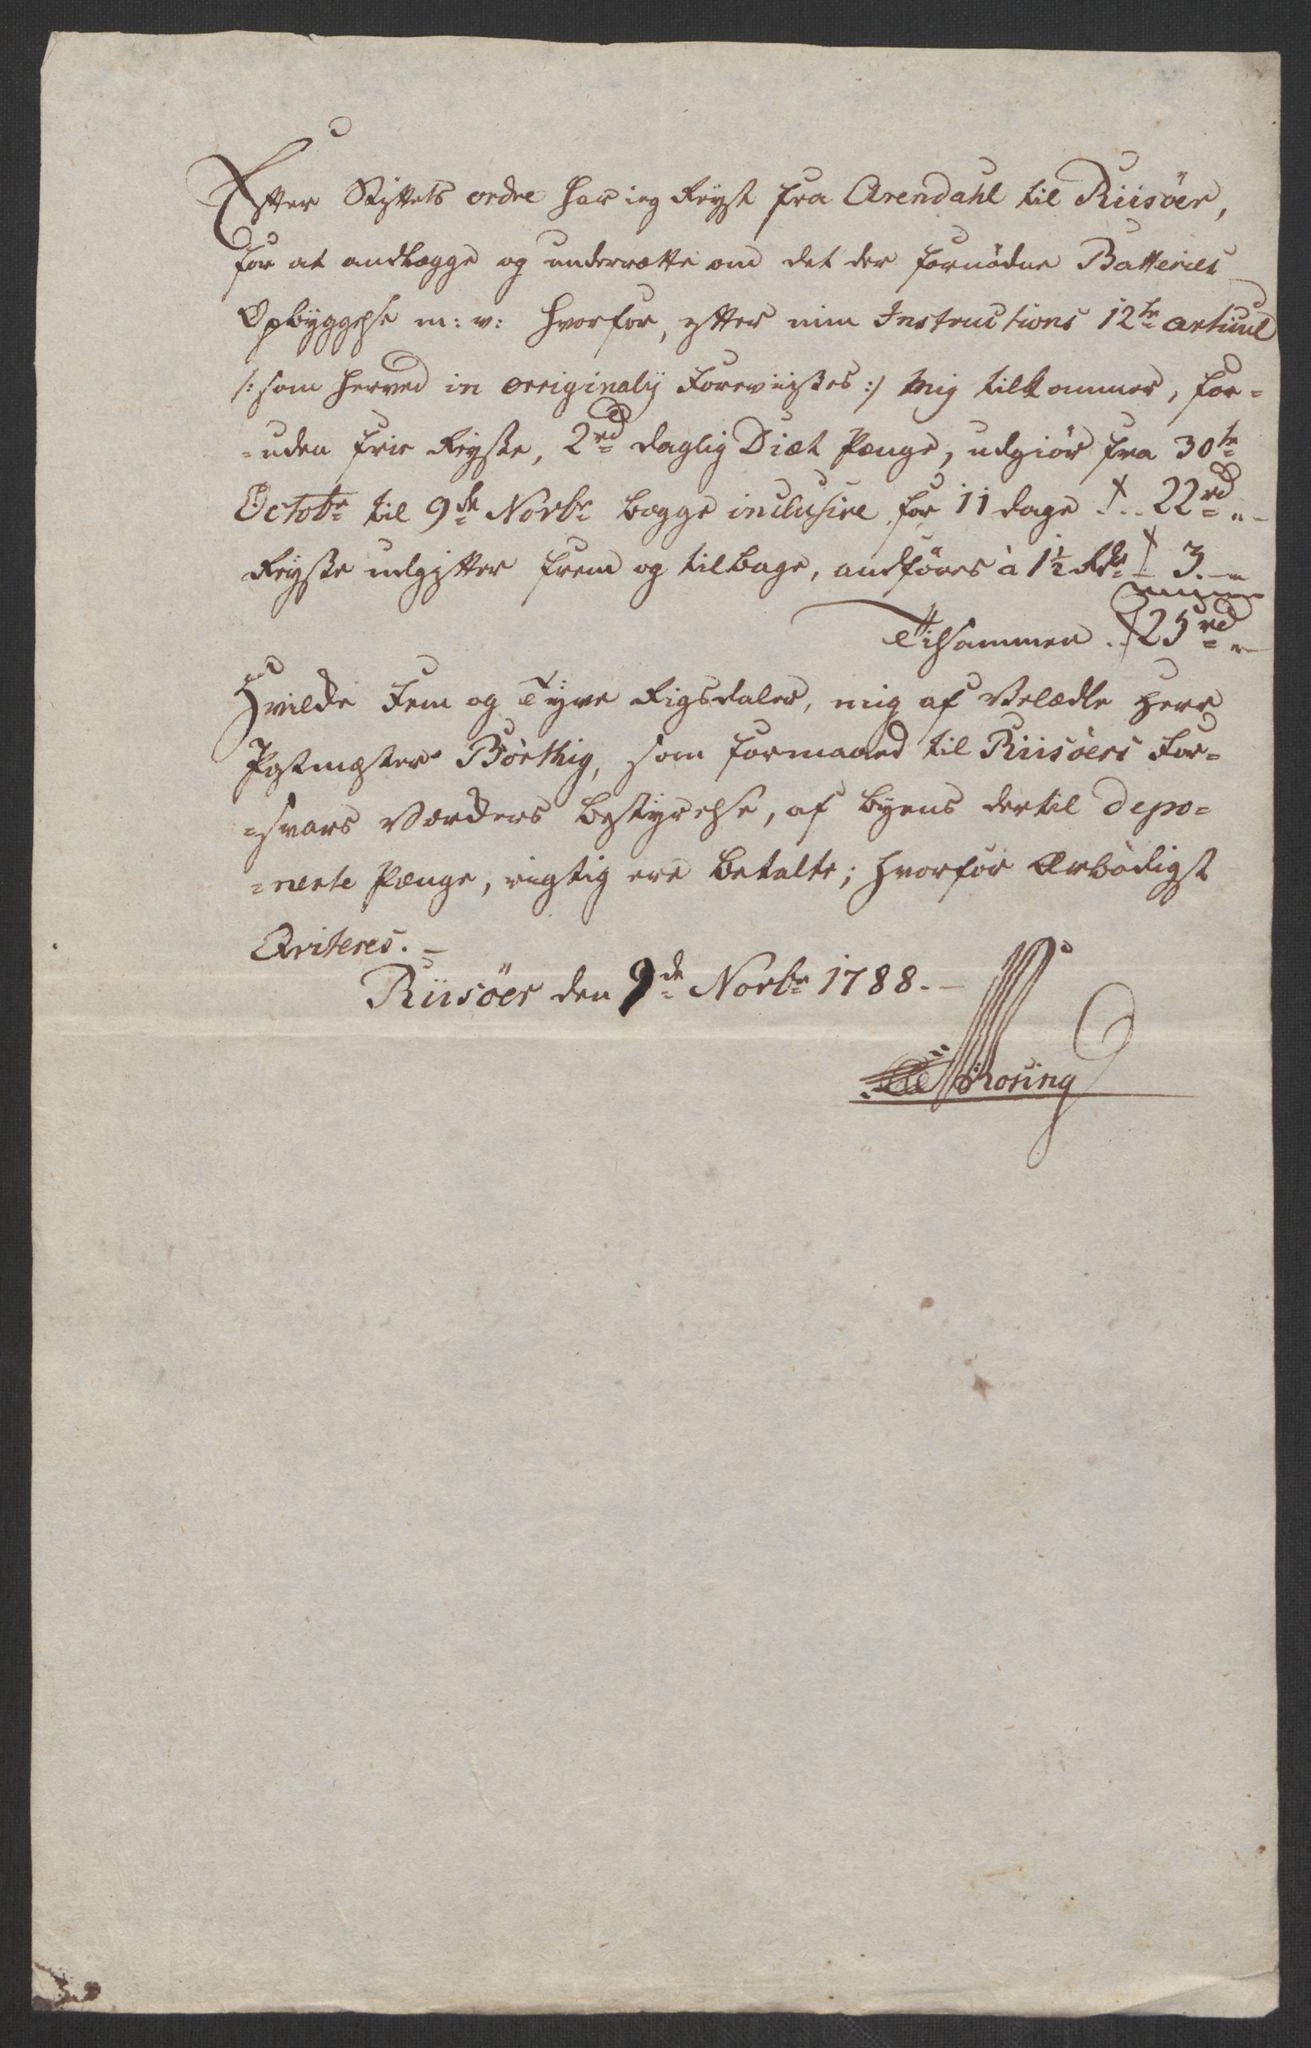 Efter Stiftets ordre har ieg Reyst fra Arendahl til Riisöer,
for at andlægge og underrætte om det der fornödne Batteries
Opbyggelse m: v: hvorfor, efter min Instructions 12te articul
/: som herved in originaly Foreviises :/ mig tilkommer, for=
=uden frie Reyse, 2rd daglig Diæt Penge, udgiör fra 30te
Octobr til 9de Novbr begge inclusive for 11 dage . . 22rd „ -
Reyse udgifter frem og tilbage, andföres à 1½ Rdr - 3. - „
Tilsammen . . 25rd „ -
Hvilde Fem og Tyve Rigsdaler, mig af Velædle Herr
Postmester Börthig, som formaaed til Riisöers For=
=svars Værders bestyrelse, af byens dertil depo=
=nerte Penge, rigtig ere betalte; hvorfor Ærbödigst
Qviteres. -
Riisöer den 9de Novbr 1788. -
Rosing